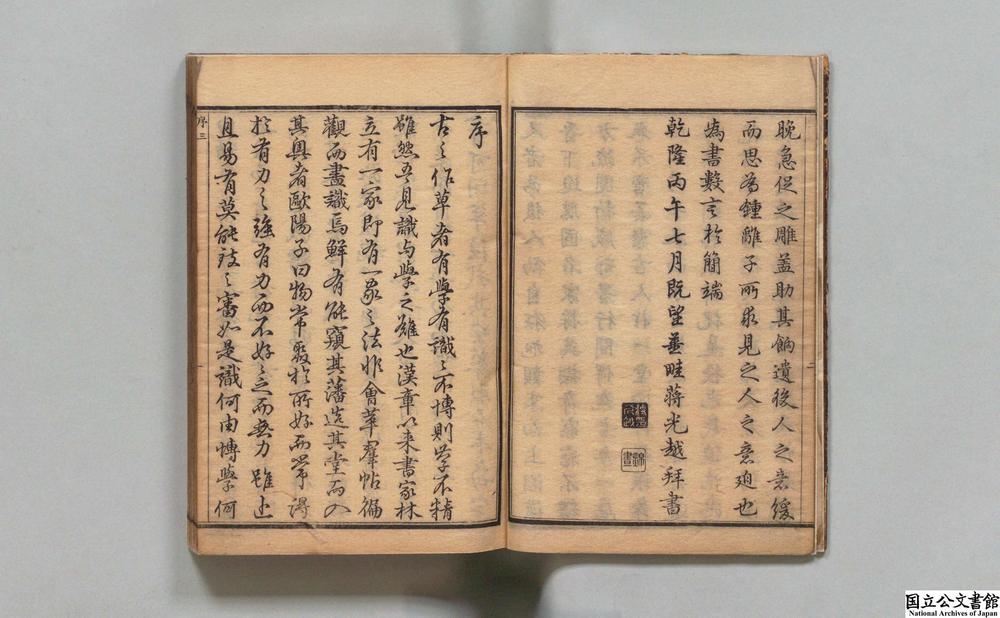 晚急促之雕盖助其餉遺後人之意緩
而思為鍾離子所求見之人之意迫也
為書數言於簡端
乾隆丙午七月既望華畦蔣光越拜書
二
序
古之作草者有學有識識不博則學不精
雖然吾見識与學之難也漢章以來書家林
立有一家即有一家之法非會萃羣帖徧
觀而盡識焉鮮有能窺其藩造其堂而入
其奧者歐陽子曰物常聚於所好而常得
於有力之強有力而不好之而無力雖近
且易有莫能致之審如是識何由博學何
序 三
国立公文書館
National Archives of Japan